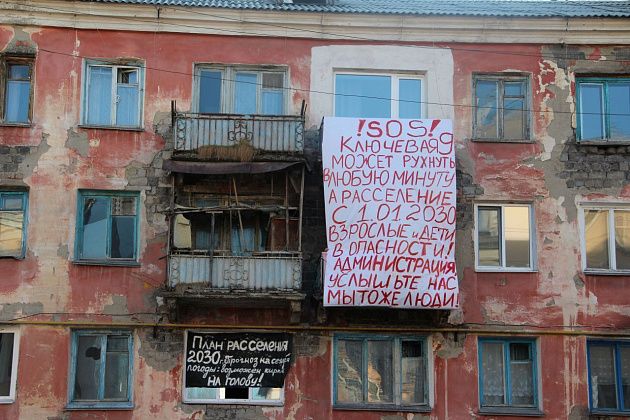 !SOS!
КЛЮЧЕВАЯ 9
МОЖЕТ РУХНУТЬ
В ЛЮБУЮ МИНУТУ
А РАССЕЛЕНИЕ
С 1.01 2030
ВЗРОСЛЫЕ и ДЕТИ
В ОПАСНОСТИ!
АДМИНИСТРАЦИЯ
УСЛЫШЬТЕ НАС
МЫ ТОЖЕ ЛЮДИ!
План расселения
2030г. Прогноз на
погоды: возможен кирпич
НА ГОЛОВУ!